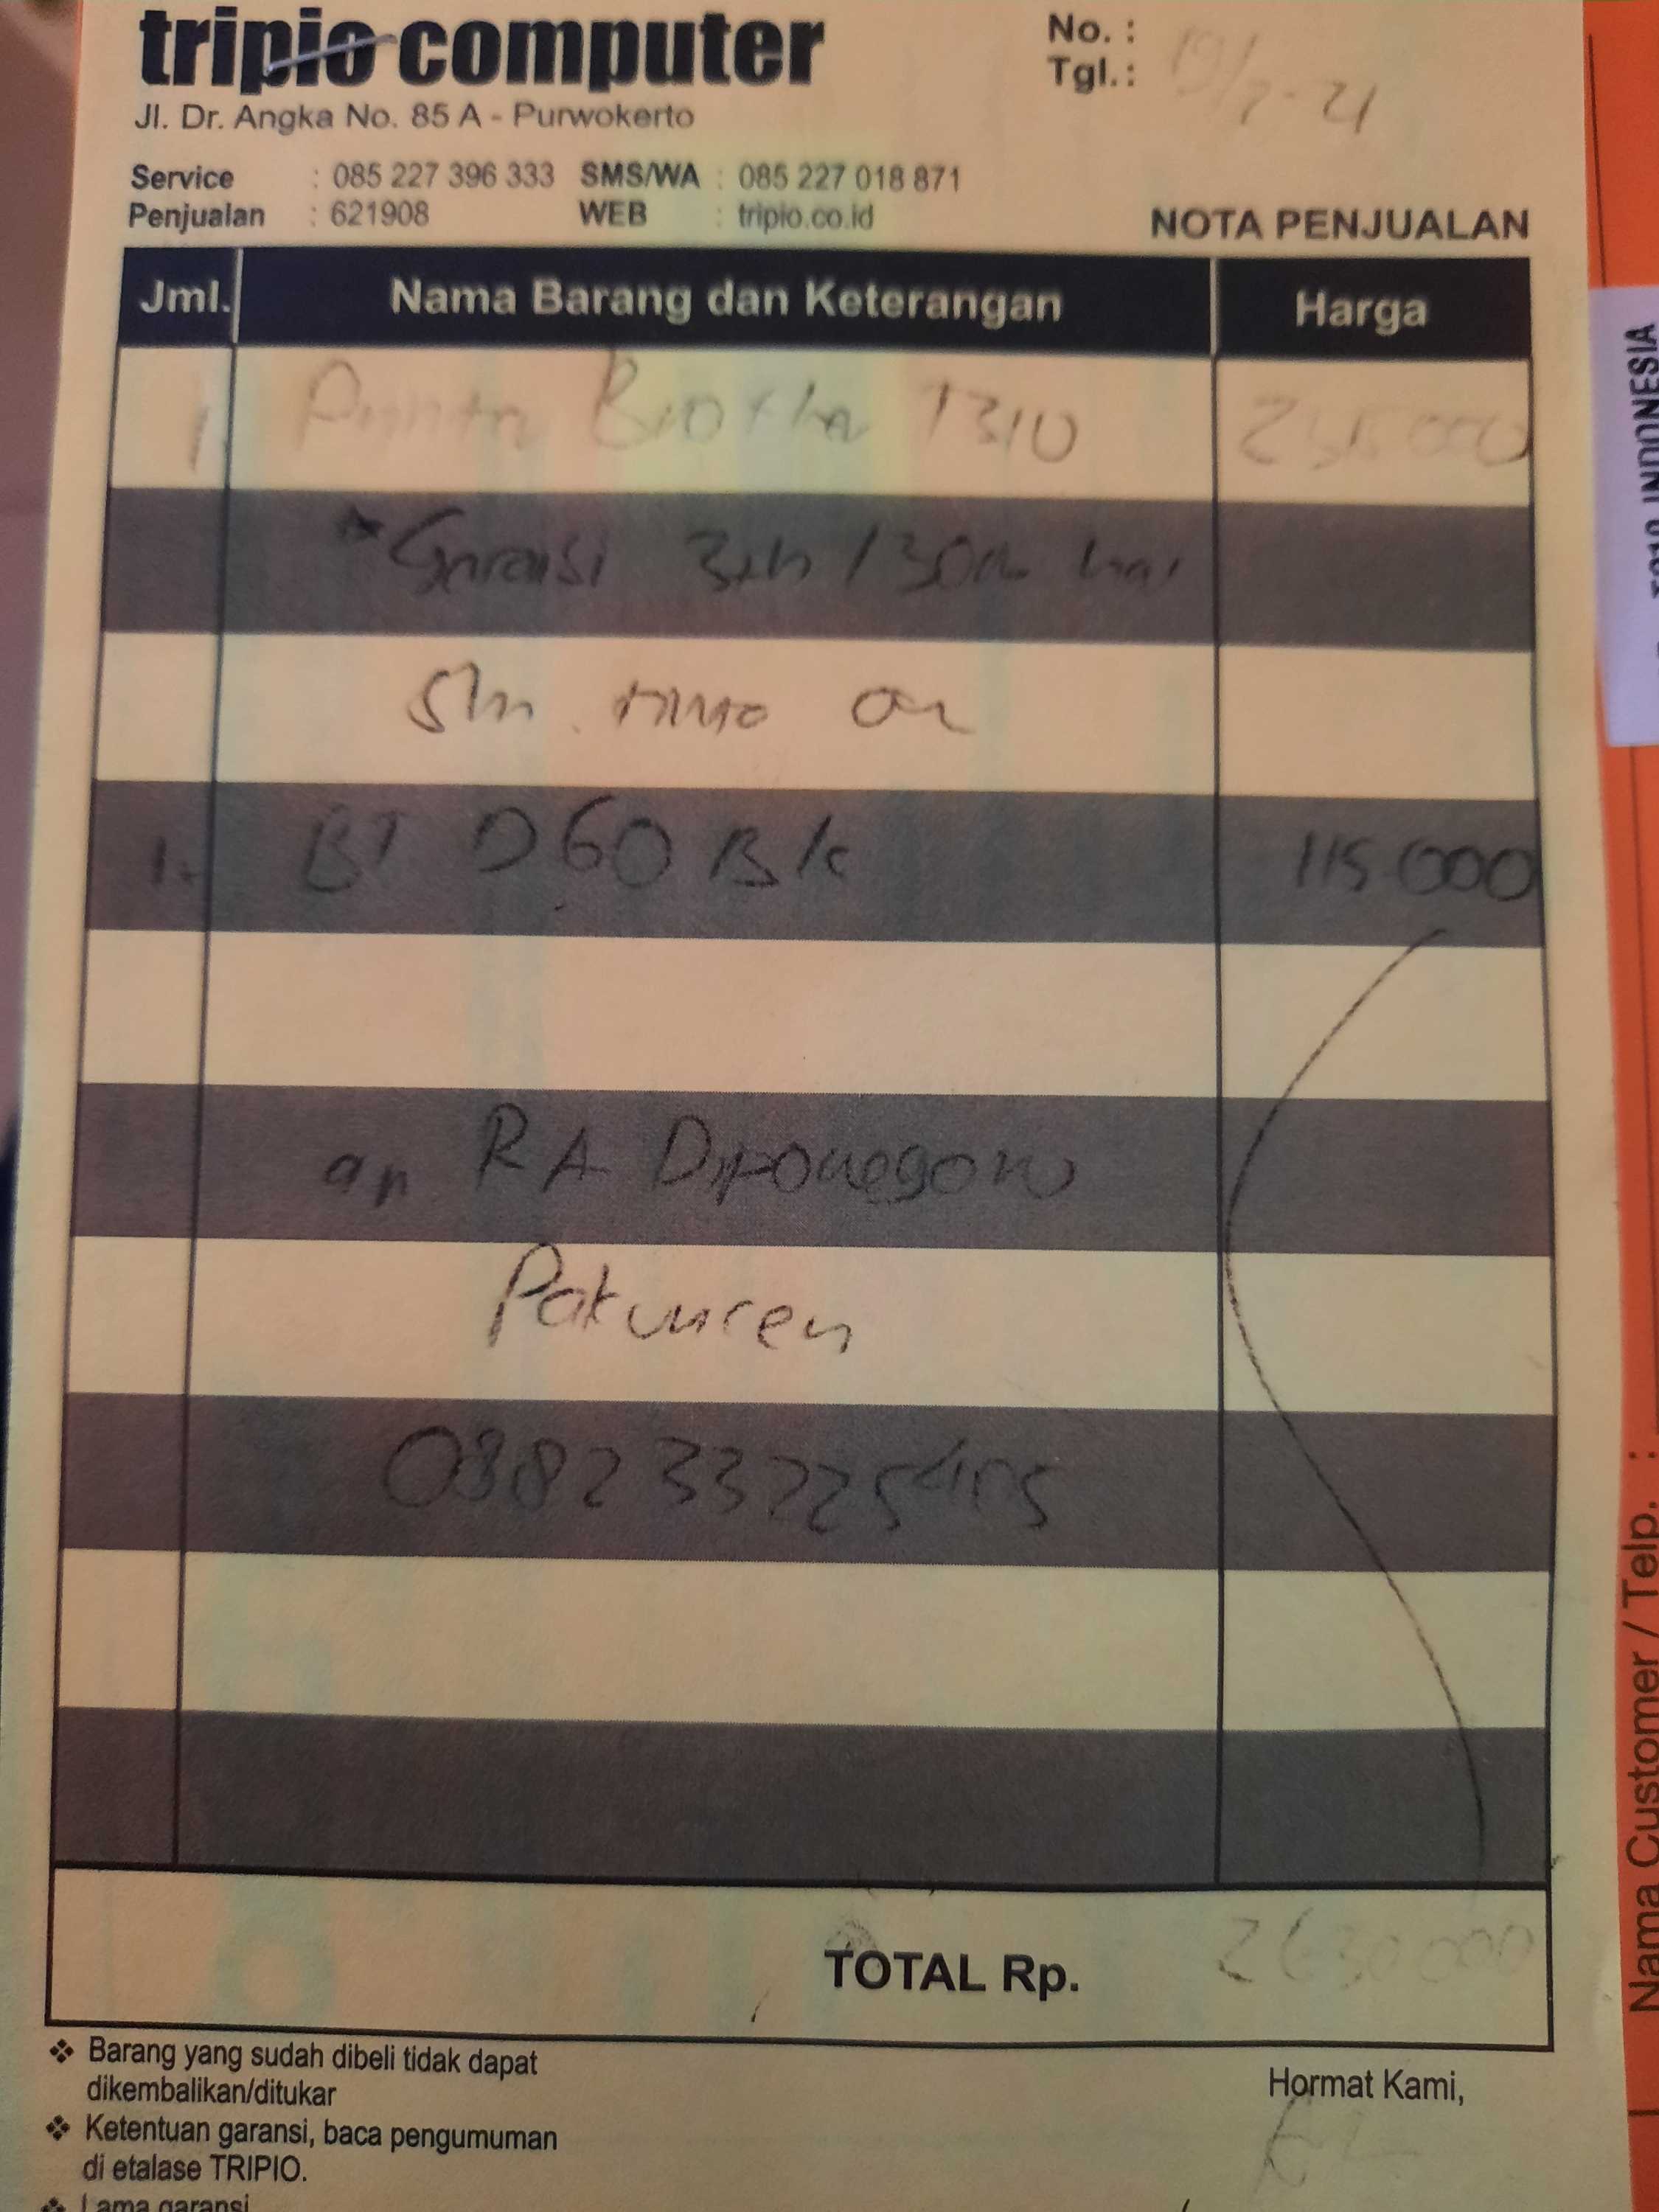 tripio computer
Jl. Dr. Angka No. 85 A - Purwokerto
No. :
Tgl. : 19/7-21
Service : 085 227 396 333 SMS/WA : 085 227 018 871
Penjualan : 621908 WEB : tripio.co.id
NOTA PENJUALAN
Jml. Nama Barang dan Keterangan Harga
1. Printer Brother T310
*Garansi 3th / 30rb
1. BT D60 Bk 115.000
an RA Diponegoro
Pakuncen
TOTAL Rp. 2630000
❖ Barang yang sudah dibeli tidak dapat
dikembalikan/ditukar
❖ Ketentuan garansi, baca pengumuman
di etalase TRIPIO.
❖ Lama garansi
Hormat Kami,
INDONESIA
Nama Customer / Telp. :